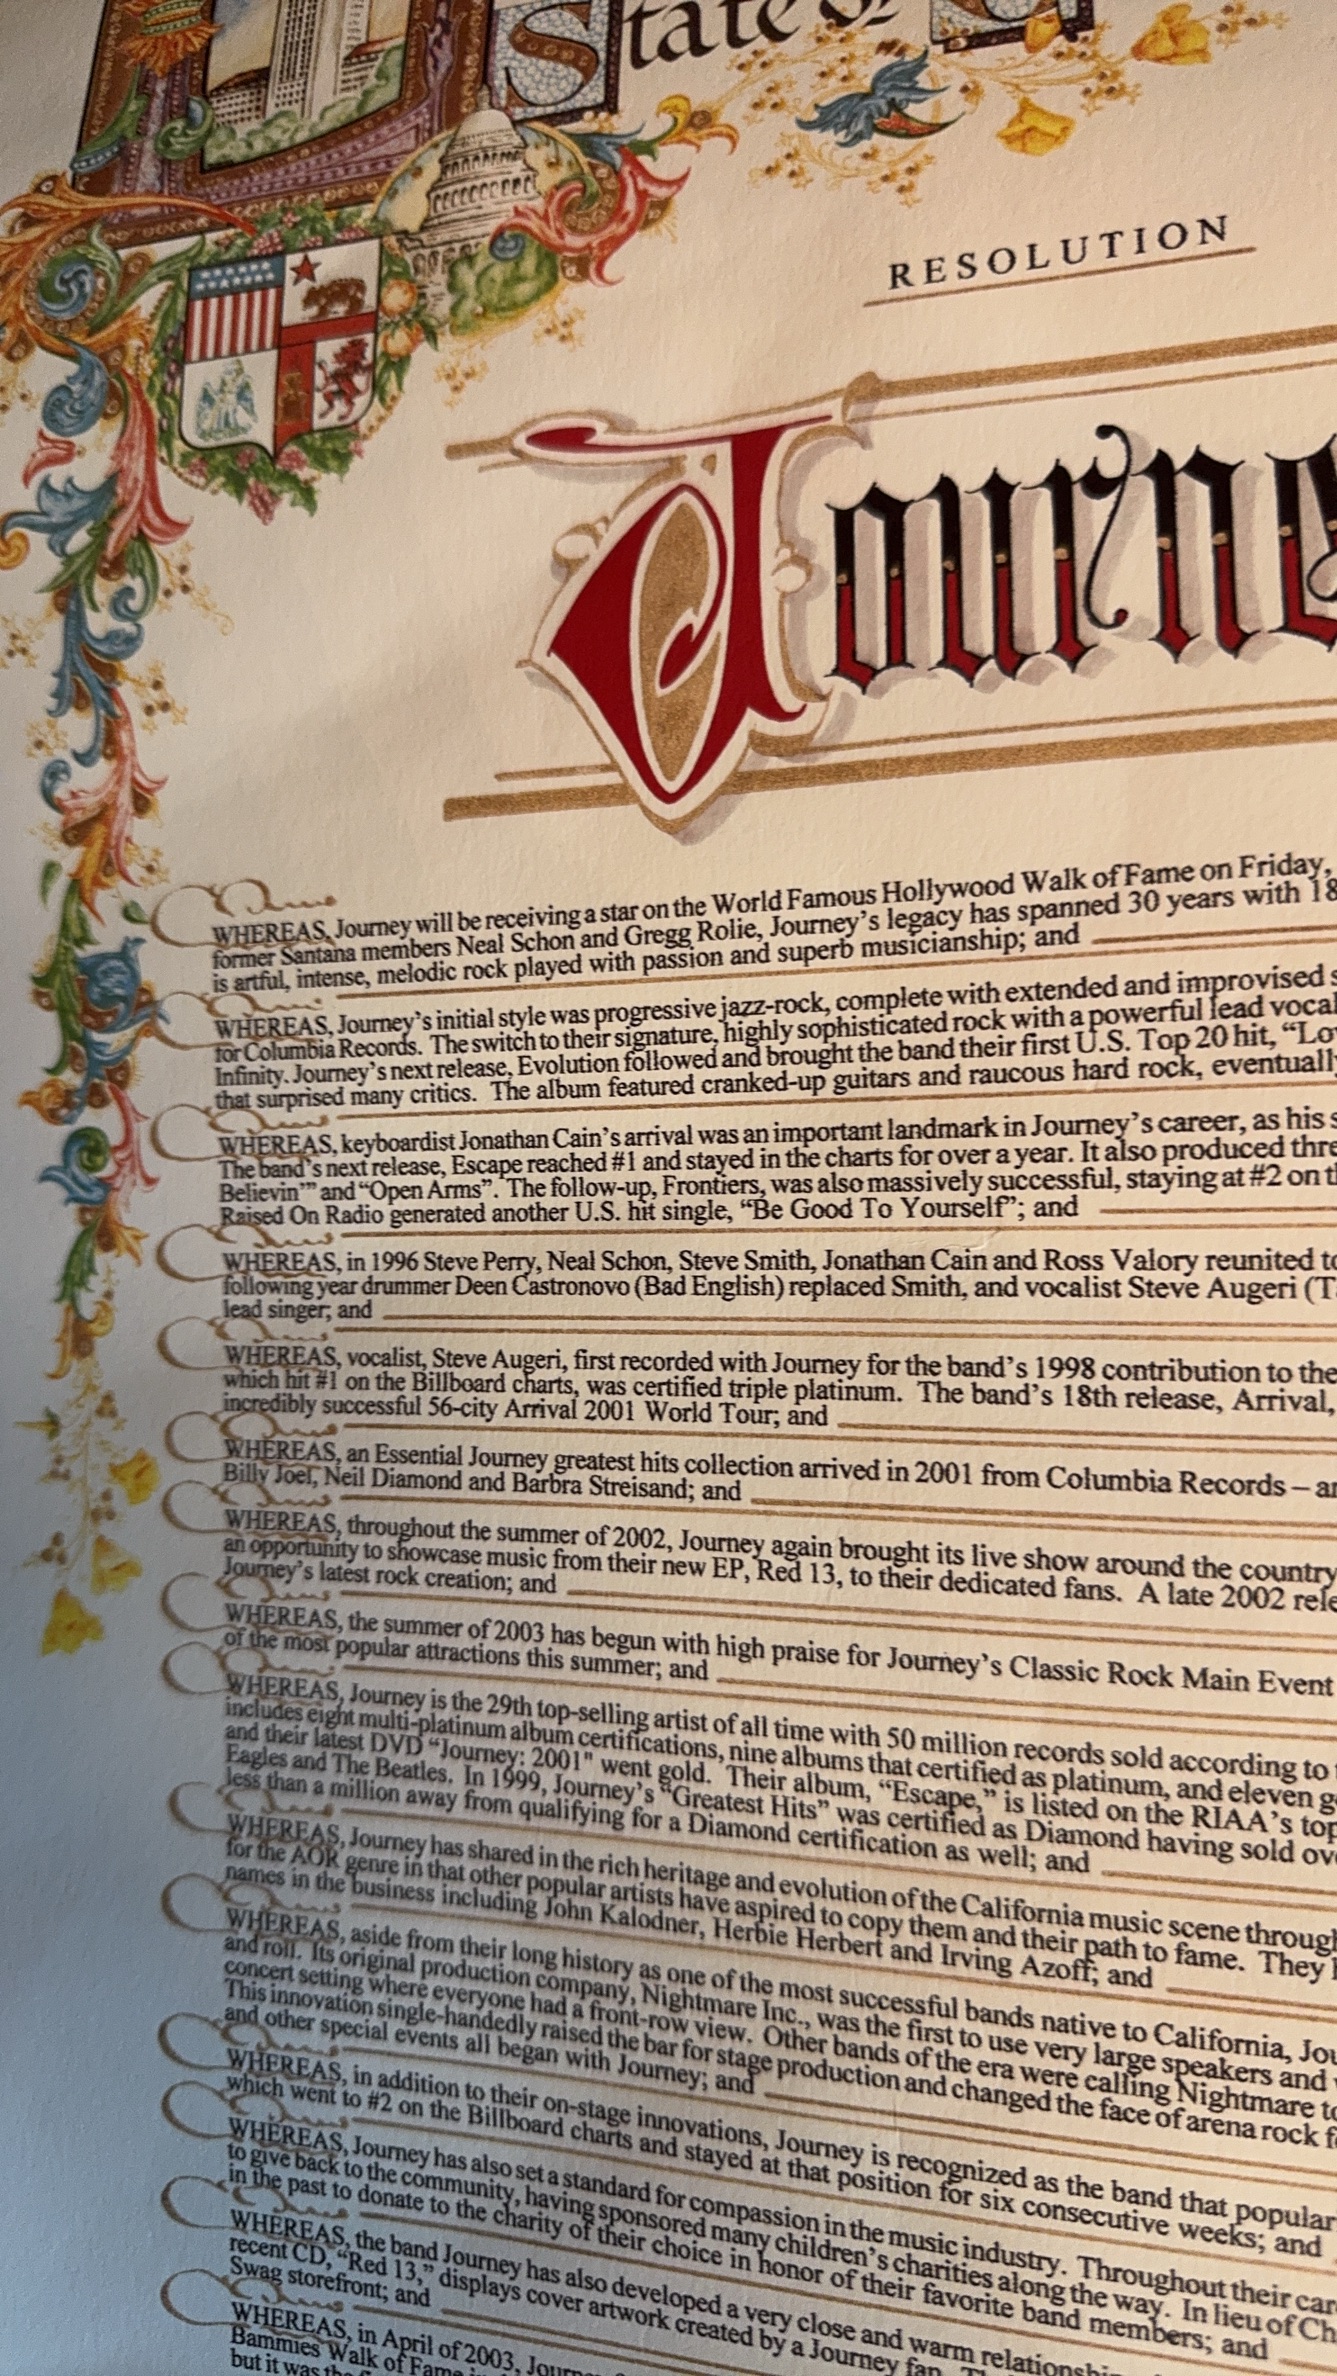 State of
RESOLUTION
Journe
WHEREAS, Journey will be receiving a star on the World Famous Hollywood Walk of Fame on Friday,
former Santana members Neal Schon and Gregg Rolie, Journey's legacy has spanned 30 years with 18
is artful, intense, melodic rock played with passion and superb musicianship; and
WHEREAS, Journey's initial style was progressive jazz-rock, complete with extended and improvised s
for Columbia Records. The switch to their signature, highly sophisticated rock with a powerful lead vocal
Infinity. Journey's next release, Evolution followed and brought the band their first U.S. Top 20 hit, "Lo
that surprised many critics. The album featured cranked-up guitars and raucous hard rock, eventually
WHEREAS, keyboardist Jonathan Cain's arrival was an important landmark in Journey's career, as his s
The band's next release, Escape reached #1 and stayed in the charts for over a year. It also produced thre
Believin'" and "Open Arms". The follow-up, Frontiers, was also massively successful, staying at #2 on th
Raised On Radio generated another U.S. hit single, "Be Good To Yourself"; and
WHEREAS, in 1996 Steve Perry, Neal Schon, Steve Smith, Jonathan Cain and Ross Valory reunited to
following year drummer Deen Castronovo (Bad English) replaced Smith, and vocalist Steve Augeri (T
lead singer; and
WHEREAS, vocalist, Steve Augeri, first recorded with Journey for the band's 1998 contribution to the
which hit #1 on the Billboard charts, was certified triple platinum. The band's 18th release, Arrival,
incredibly successful 56-city Arrival 2001 World Tour; and
WHEREAS, an Essential Journey greatest hits collection arrived in 2001 from Columbia Records – an
Billy Joel, Neil Diamond and Barbra Streisand; and
WHEREAS, throughout the summer of 2002, Journey again brought its live show around the country
an opportunity to showcase music from their new EP, Red 13, to their dedicated fans. A late 2002 rele
Journey's latest rock creation; and
WHEREAS, the summer of 2003 has begun with high praise for Journey's Classic Rock Main Event
of the most popular attractions this summer; and
WHEREAS, Journey is the 29th top-selling artist of all time with 50 million records sold according to
includes eight multi-platinum album certifications, nine albums that certified as platinum, and eleven g
and their latest DVD "Journey: 2001" went gold. Their album, "Escape," is listed on the RIAA's top
Eagles and The Beatles. In 1999, Journey's "Greatest Hits" was certified as Diamond having sold ov
less than a million away from qualifying for a Diamond certification as well; and
WHEREAS, Journey has shared in the rich heritage and evolution of the California music scene through
for the AOR genre in that other popular artists have aspired to copy them and their path to fame. They h
names in the business including John Kalodner, Herbie Herbert and Irving Azoff; and
WHEREAS, aside from their long history as one of the most successful bands native to California, Jou
and roll. Its original production company, Nightmare Inc., was the first to use very large speakers and
concert setting where everyone had a front-row view. Other bands of the era were calling Nightmare to
This innovation single-handedly raised the bar for stage production and changed the face of arena rock f
and other special events all began with Journey; and
WHEREAS, in addition to their on-stage innovations, Journey is recognized as the band that popular
which went to #2 on the Billboard charts and stayed at that position for six consecutive weeks; and
WHEREAS, Journey has also set a standard for compassion in the music industry. Throughout their car
to give back to the community, having sponsored many children's charities along the way. In lieu of Ch
in the past to donate to the charity of their choice in honor of their favorite band members; and
WHEREAS, the band Journey has also developed a very close and warm relationshi
recent CD, "Red 13," displays cover artwork created by a Journey fan. Th
Swag storefront; and
WHEREAS, in April of 2003, Journ
Bammies Walk of Fame
but it was the